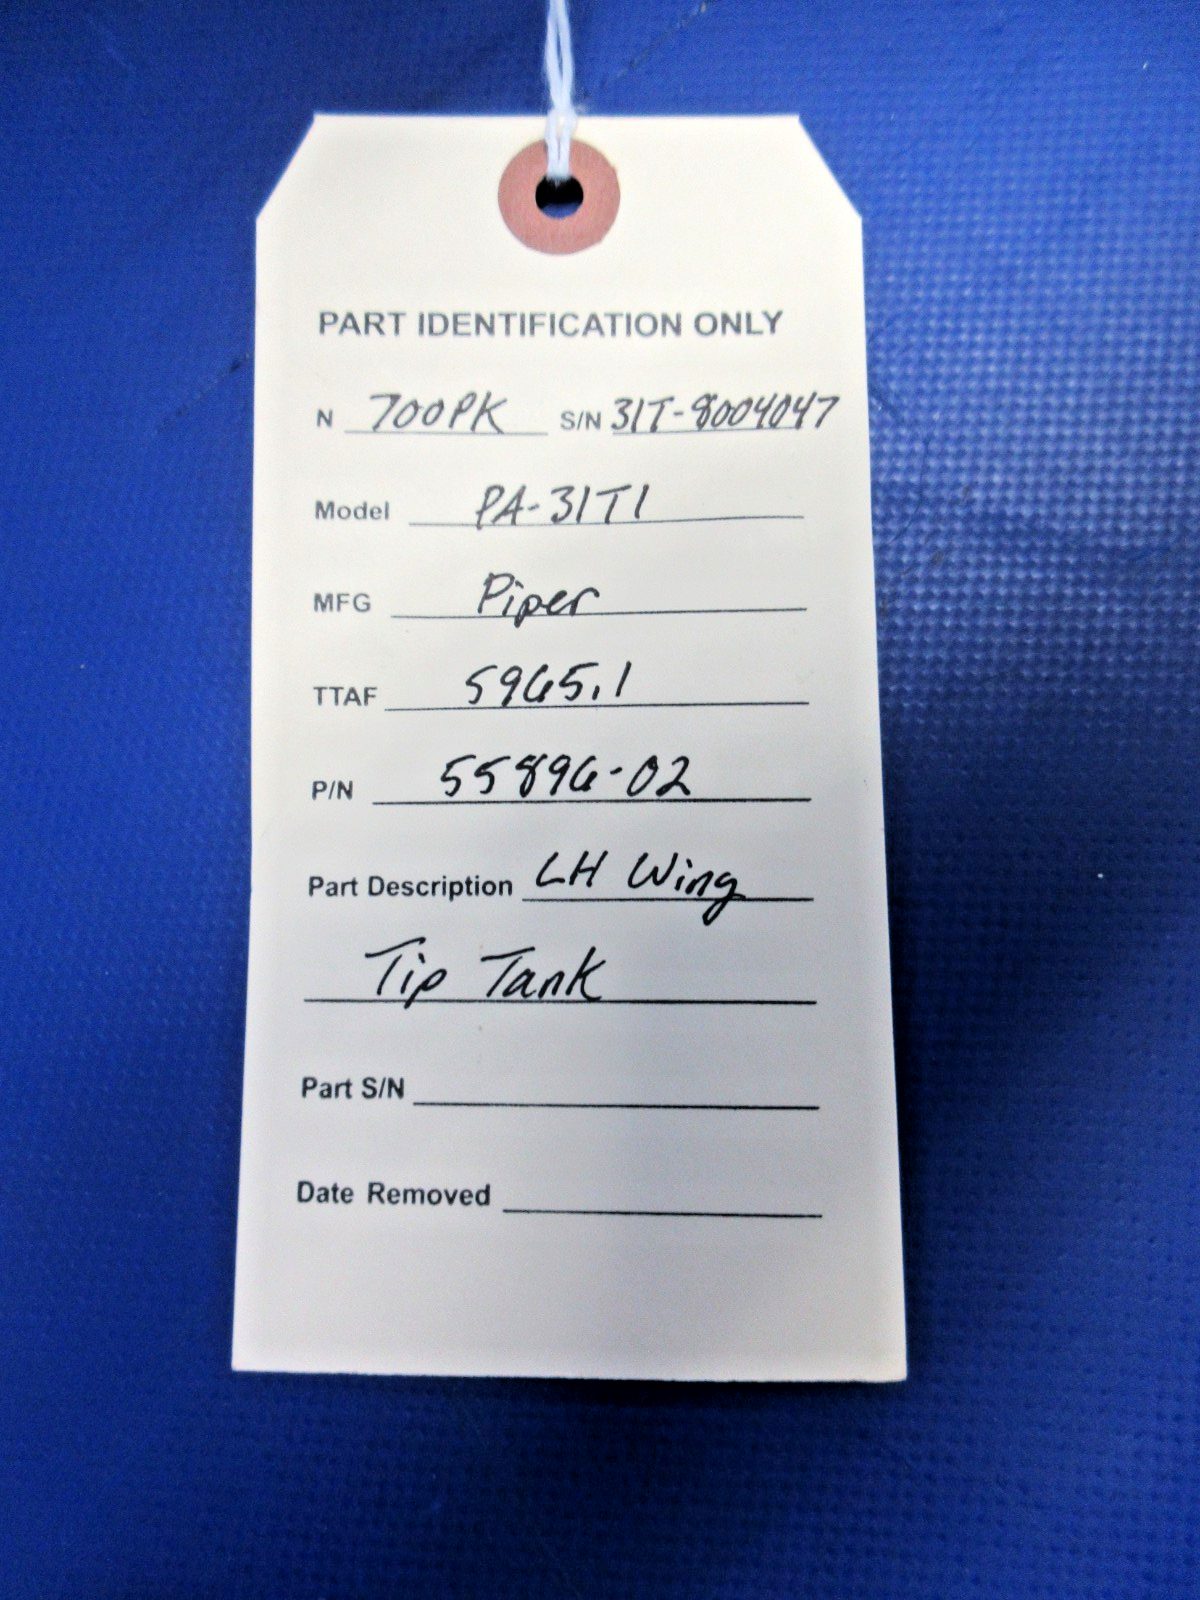 PART IDENTIFICATION ONLY
N 700PK S/N 31T-8004047
Model PA-31T1
MFG Piper
TTAF 5965.1
P/N 55896-02
Part Description LH Wing
Tip Tank
Part S/N
Date Removed